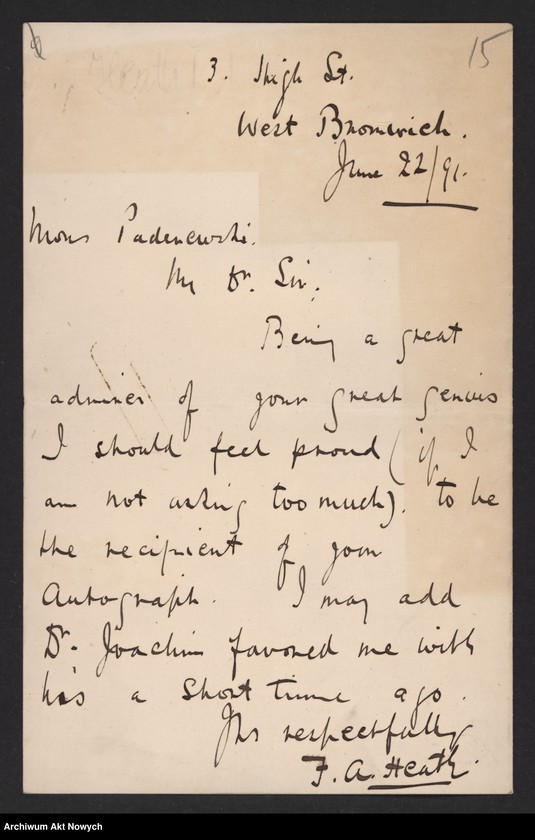 15
3. High St.
West Bromwich.
June 22/91.
Mons Paderewski.
My Dr. Sir,
Being a great
admirer of your great genius
I should feel proud (if I
am not asking too much). to be
the recipient of your
Autograph. I may add
Dr. Joachim favored me with
his a short time ago.
Yrs respectfully
F. A. Heath.
Archiwum Akt Nowych